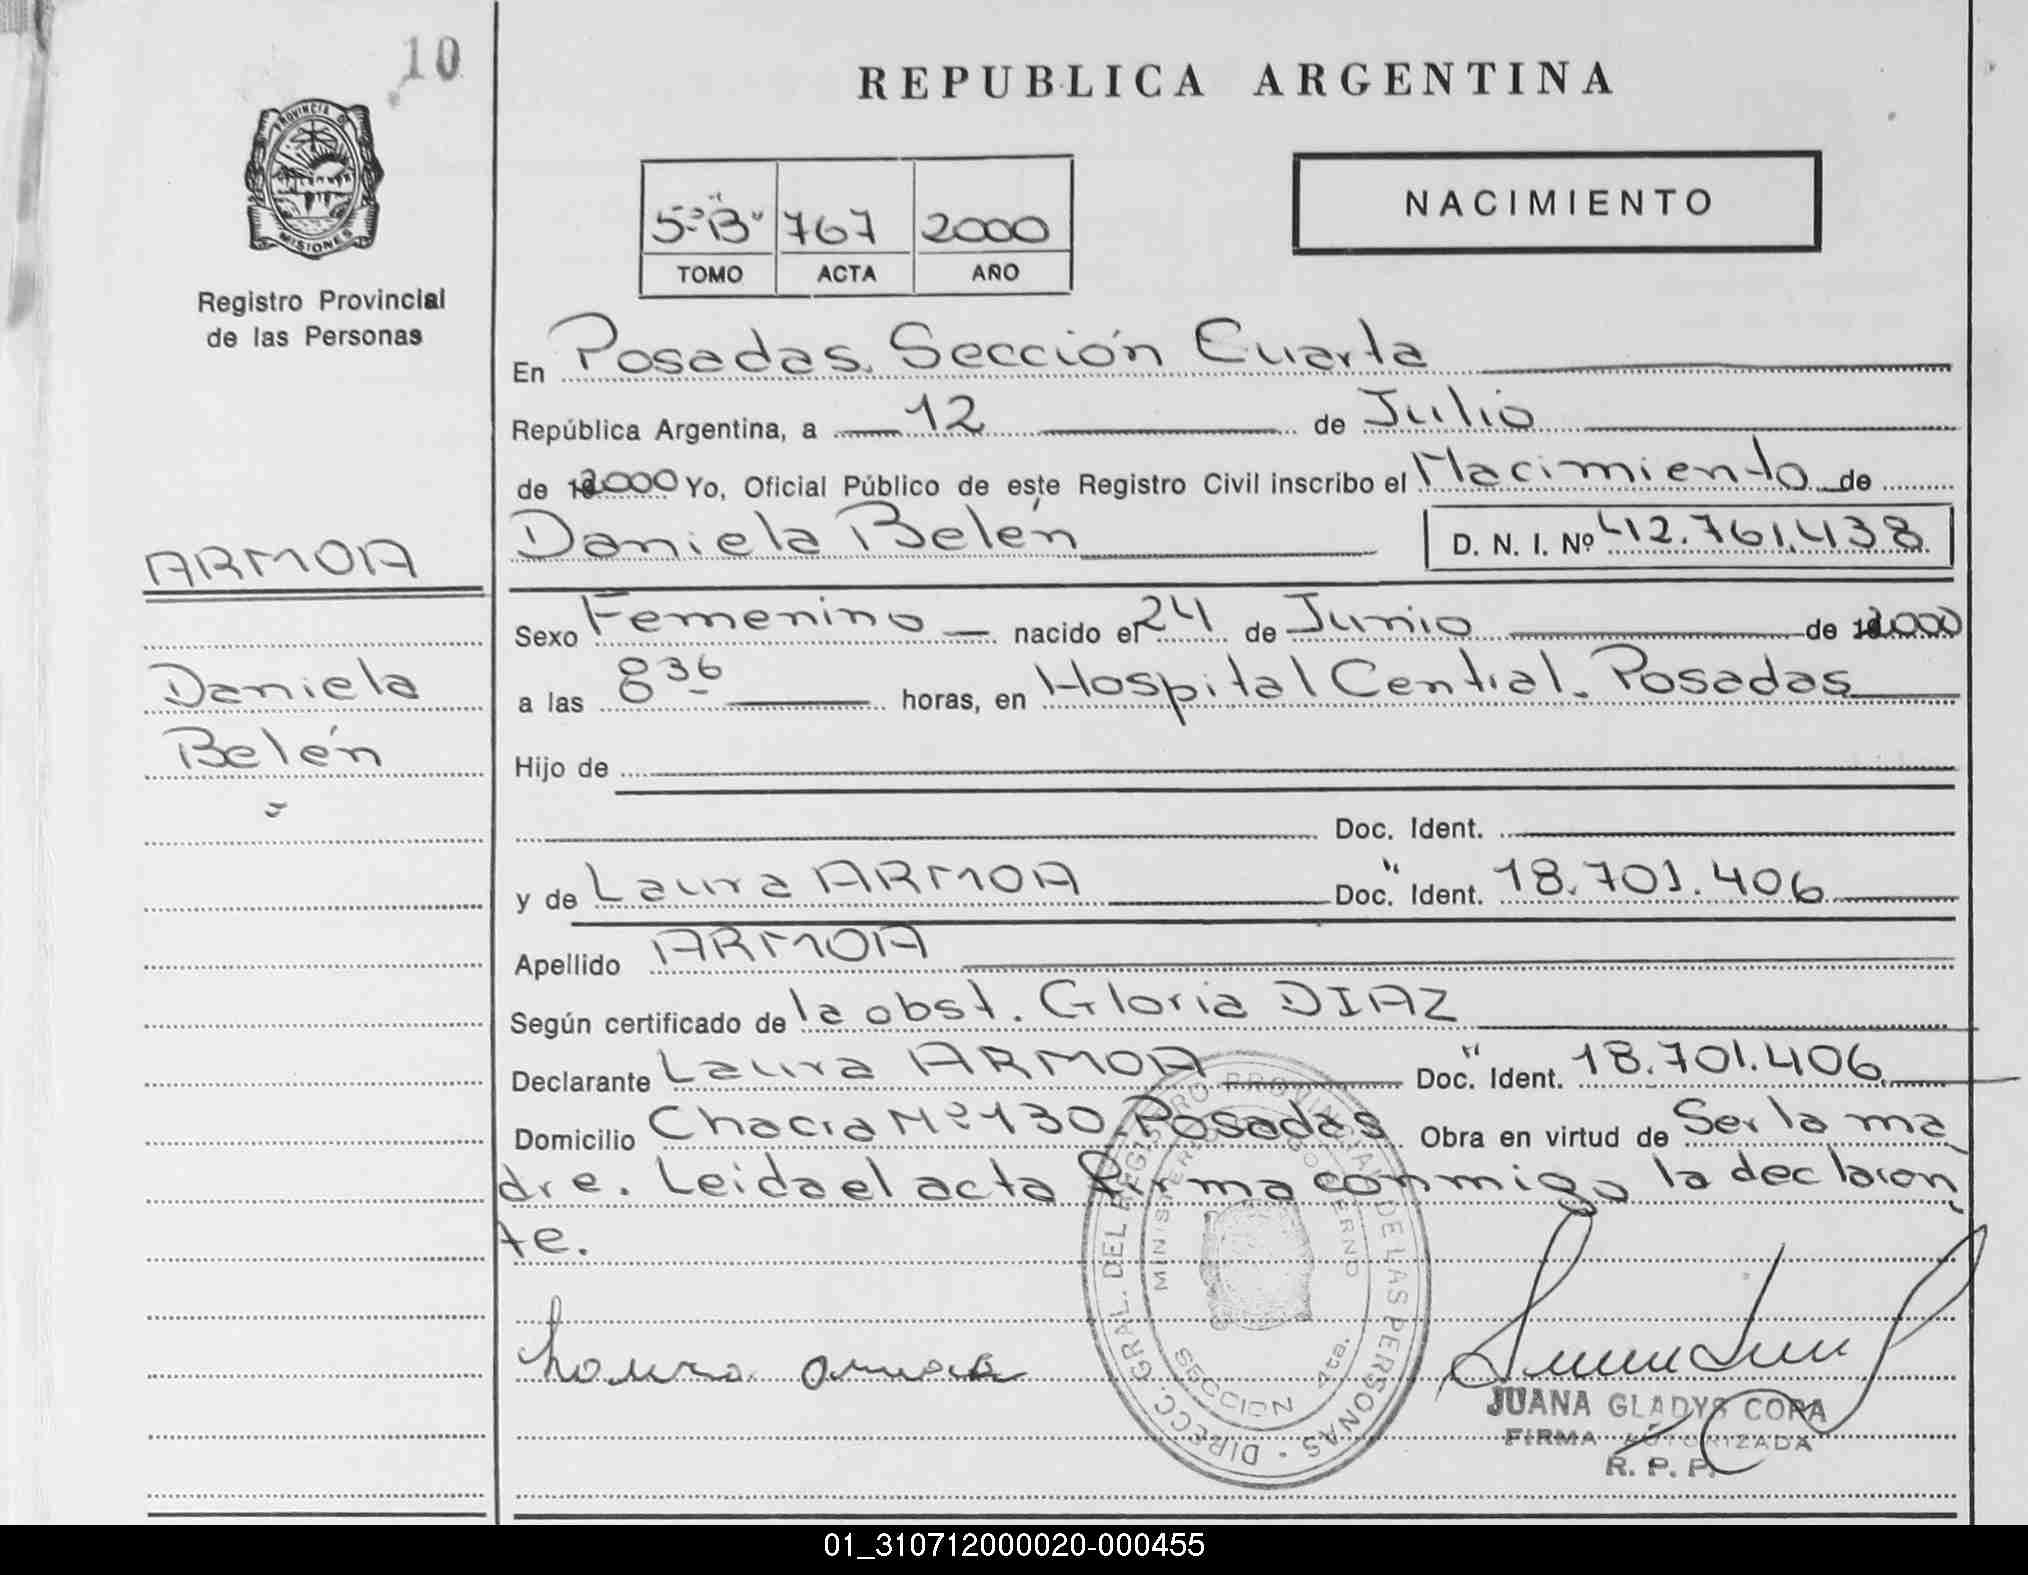 10
REPUBLICA ARGENTINA
PROVINCIA DE
MISIONES
Registro Provincial
de las Personas
5º "B" 767 2000
TOMO ACTA AÑO
NACIMIENTO
En Posadas. Sección Cuarta
República Argentina, a 12 de Julio
de 2000 Yo, Oficial Público de este Registro Civil inscribo el Nacimiento de
Daniela Belén D. N. I. Nº 42.761.438
ARMOA
Daniela
Belén
Sexo Femenino nacido el 24 de Junio de 2000
a las 8 36 horas, en Hospital Central. Posadas
Hijo de
Doc. Ident.
y de Laura ARMOA Doc. " Ident. 18.701.406
Apellido ARMOA
Según certificado de la obst. Gloria DIAZ
Declarante Laura ARMOA Doc. " Ident. 18.701.406
Domicilio Chacra Nº 130 Posadas Obra en virtud de Ser la ma
dre. Leida el acta firma conmigo la declaran
te.
DIRECC. GRAL. DEL REGISTRO PROVINCIAL DE LAS PERSONAS
MINISTERIO GOBIERNO
SECCION 4ta.
Laura Armoa
JUANA GLADYS COPA
FIRMA AUTORIZADA
R. P. P.
01_310712000020-000455